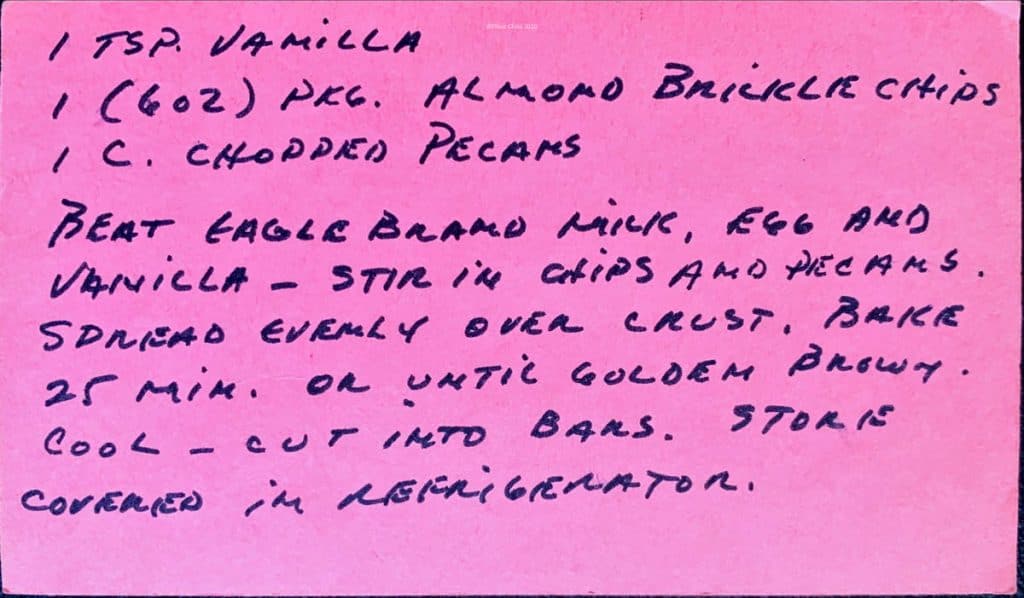 1 TSP. VANILLA
1 (6oz) PKG. ALMOND BRICKLE CHIPS
1 C. CHOPPED PECANS
BEAT EAGLE BRAND MILK, EGG AND
VANILLA – STIR IN CHIPS AND PECANS.
SPREAD EVENLY OVER CRUST. BAKE
25 MIN. OR UNTIL GOLDEN BROWN.
COOL – CUT INTO BARS. STORE
COVERED IN REFRIGERATOR.